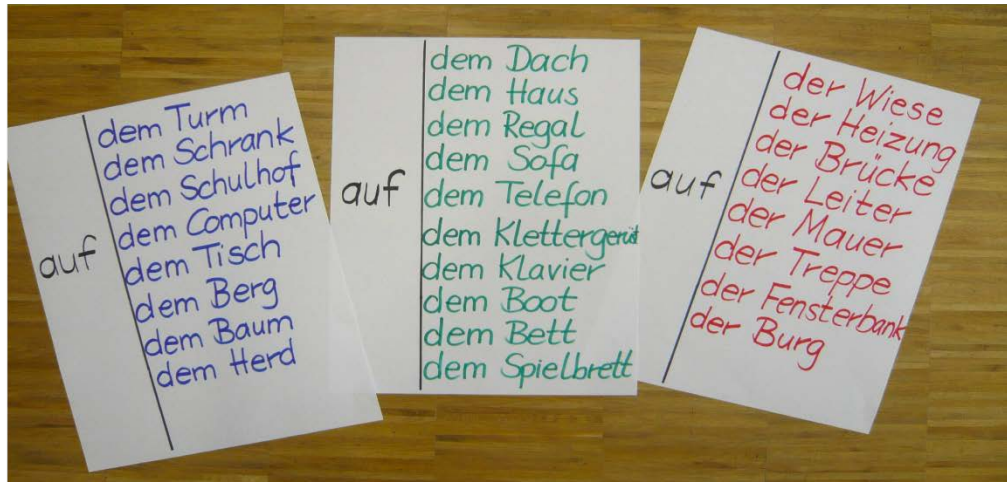 auf
dem Turm
dem Schrank
dem Schulhof
dem Computer
dem Tisch
dem Berg
dem Baum
dem Herd
auf
dem Dach
dem Haus
dem Regal
dem Sofa
dem Telefon
dem Klettergerüst
dem Klavier
dem Boot
dem Bett
dem Spielbrett
auf
der Wiese
der Heizung
der Brücke
der Leiter
der Mauer
der Treppe
der Fensterbank
der Burg